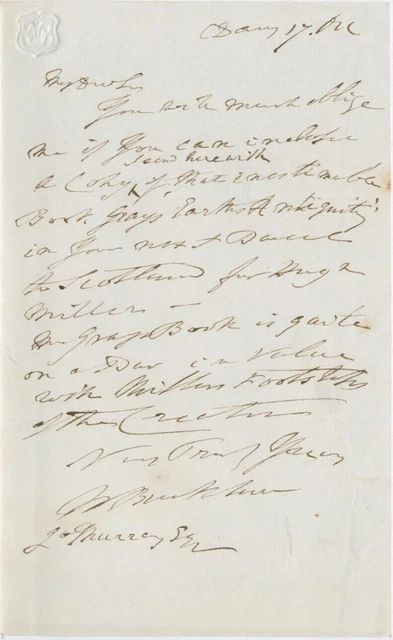 My Dr Sir
You will much oblige
me if you can inclose
I send herewith
a Copy of that inestimable
Book Grays Earths Antiquity
in your next Parcel
to Scotland for Hugh
Miller –
Mr Grays Book is quite
on a Par in Value
with Millers Footsteps
of the Creator
Very Truly Yours
W Buckland
J Murray Esq